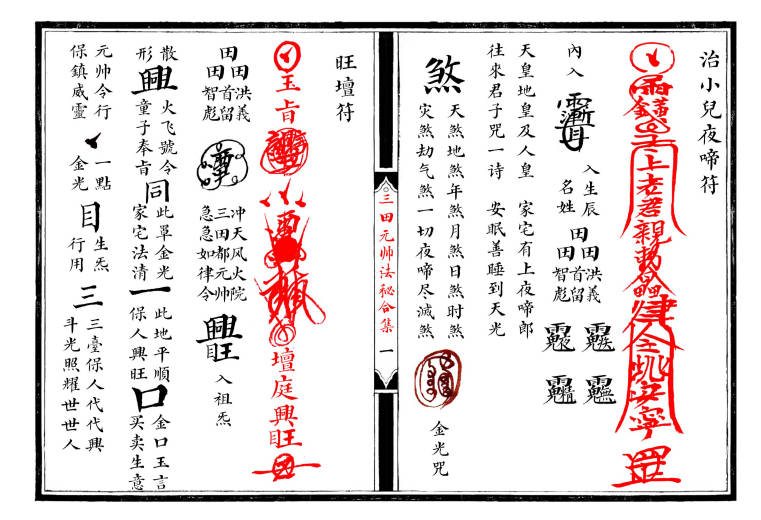 治小兒夜啼符
上老君親勅
安寧罡
內入
入生辰
名姓
田田田
洪義
首留
智彪
天皇地皇及人皇 家宅有上夜啼郎
往來君子咒一诗 安眠善睡到天光
煞
天煞地煞年煞月煞日煞时煞
灾煞劫气煞一切夜啼尽滅煞
金光咒
三田元帅法秘合集 一
旺壇符
玉旨
壇庭興旺
田田田
洪義
首留
智彪
冲天风火院
三田都元帅
急急如律令
入祖炁
散形
興
火飞號令
童子奉旨
同
此單金光
家宅法清
一
此地平順
保人興旺
口
金口玉言
买卖生意
元帅令行
保鎮威靈
一點
金光
目
生炁
行用
三
三臺保人代代興
斗光照耀世世人